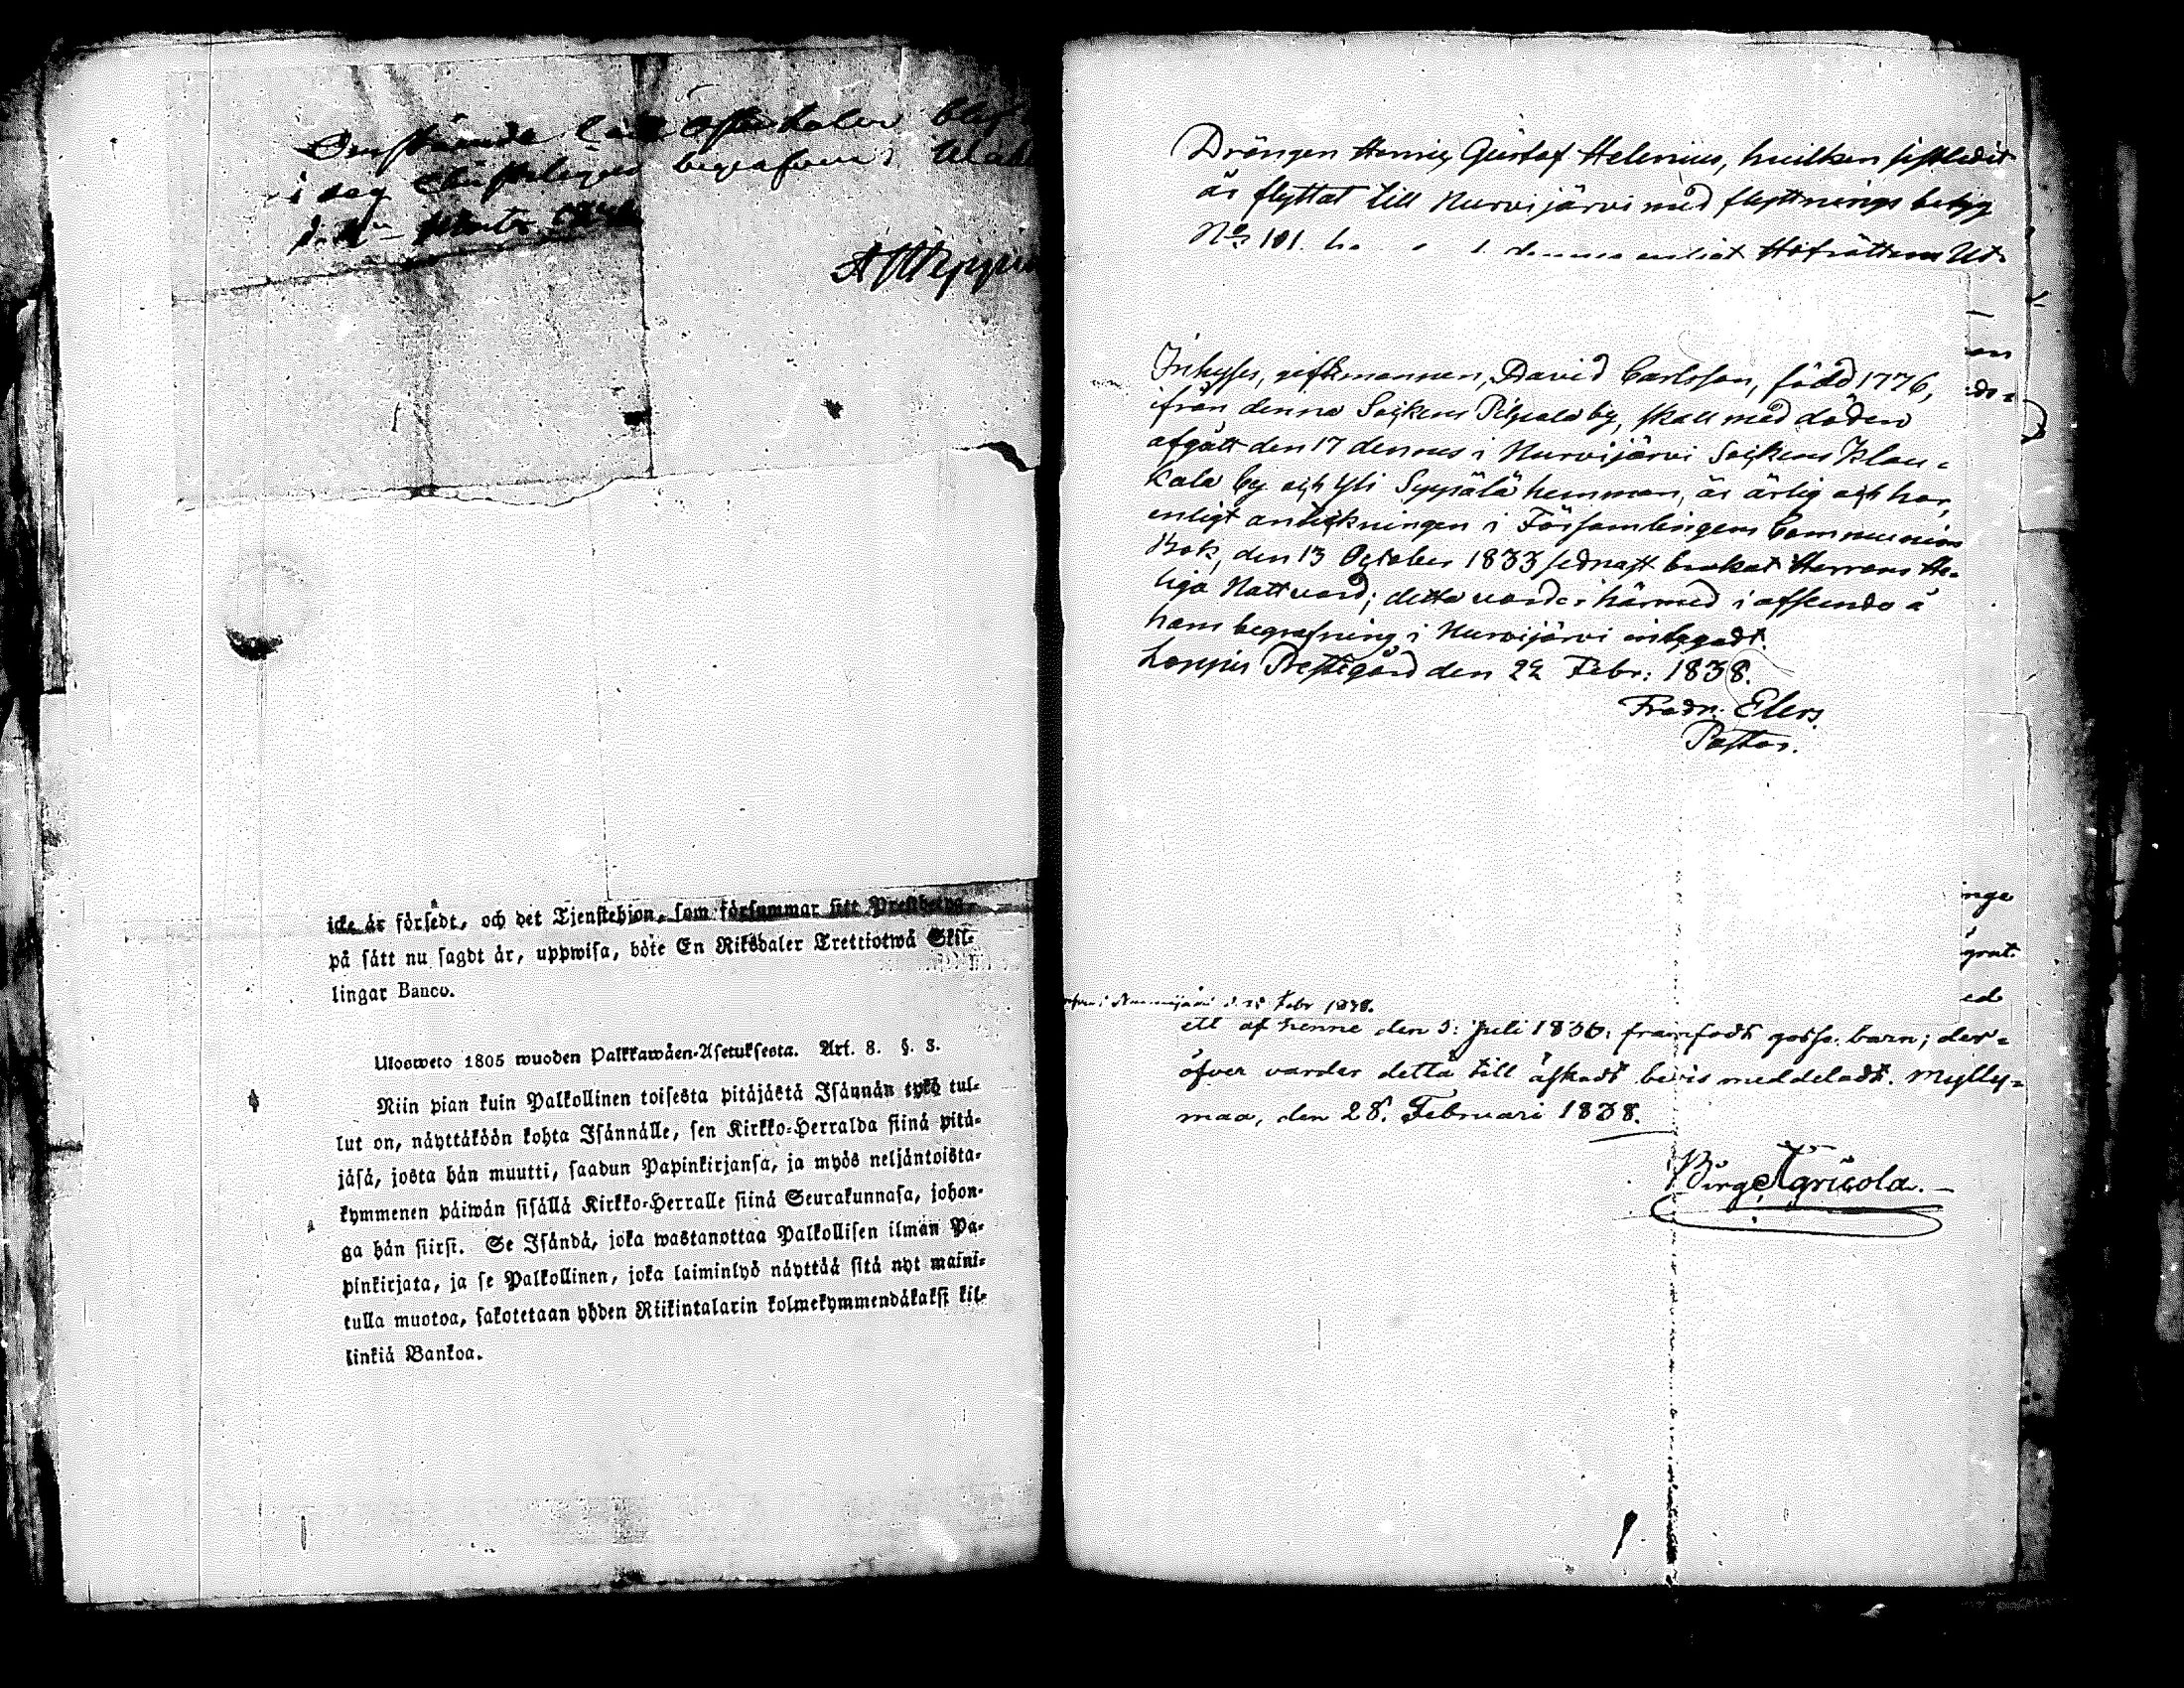 i dag christeligen begrafven i
icke är försedt, och det Tjenstehjon, som försummar sitt Prestbetyg
på sätt nu sagdt är, uppwisa, böte En Riksdaler Trettiotwå Skil-
lingar Banco.
Ulosweto 1805 wuoden Palkkawäen-Asetuksesta. Art. 8. §. 3.
Niin pian kuin Palkollinen toisesta pitäjästä Isännän tykö tul-
lut on, näyttäköön kohta Isännälle, sen Kirkko-Herralda siinä pitä-
jäsä, josta hän muutti, saadun Papinkirjansa, ja myös neljäntoista-
kymmenen päiwän sisällä Kirkko-Herralle siinä Seurakunnasa, johon-
ga hän siirsi. Se Isändä, joka wastanottaa Palkollisen ilman Pa-
pinkirjata, ja se Palkollinen, joka laiminlyö näyttää sitä nyt maini-
tulla muotoa, sakotetaan yhden Riikintalarin kolmekymmendäkaksi kil-
linkiä Bankoa.
Drängen Henric Gustaf Helenius, hvilken sistledit
är flyttat till Nurmijärvi med flyttnings betyg
No 101. enligt Hofrättens Ut-
Inhyses, gifte mannen, David Carlsson, född 1776,
ifrån denna Sockens Pilpala by, skall med döden
afgått den 17 dennes i Nurmijärvi Sockens Klau-
kala by och Yli Seppälä hemman, är ärlig och har,
enligt anteckningen i Församlingens Communion
Bok, den 13 October 1833 sednast brukat Herrans He-
liga Nattvard; detta varder härmed i afseende å
hans begrafning i Nurmijärvi intygadt.
Loppis Prestegård den 22 Febr: 1838.
Fredr. Elers.
Pastor.
i Nurmijärvi d. 25 Febr 1838.
ett af henne den 5: Juli 1836: framfödt gosse barn; der-
öfver varder detta till äskadt bevis meddeladt. Mylly-
maa, den 28. Februari 1838.
Birg. Agricola.